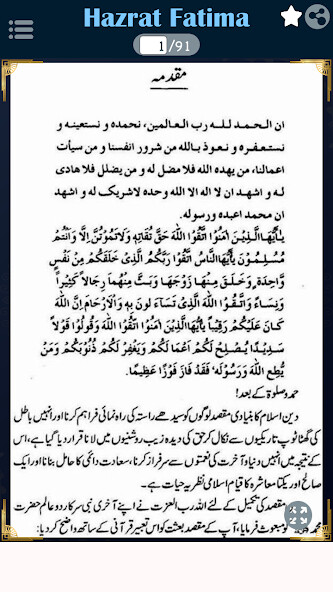 Hazrat Fatima
1 /91
مقدمہ
ان الحمد للہ رب العالمین، نحمدہ و نستعینہ و
نستغفرہ و نعوذ باللہ من شرور انفسنا و من سیأت
اعمالنا، من یھدہ اللہ فلا مضل لہ و من یضلل فلا ھادی
لہ و اشھد ان لا الہ الا اللہ وحدہ لاشریک لہ و اشھد
ان محمد اعبدہ ورسولہ.
يٰاَيُّهَا الَّذِيْنَ اٰمَنُوْا اتَّقُوْا اللّٰهَ حَقَّ تُقَاتِهٖ وَلَا تَمُوْتُنَّ اِلَّا وَاَنْتُمْ
مُّسْلِمُوْنَ يٰاَيُّهَا النَّاسُ اتَّقُوْا رَبَّكُمُ الَّذِيْ خَلَقَكُمْ مِّنْ نَّفْسٍ
وَّاحِدَةٍ وَّخَلَقَ مِنْهَا زَوْجَهَا وَبَثَّ مِنْهُمَا رِجَالًا كَثِيْرًا
وَّنِسَاءً وَاتَّقُوا اللّٰهَ الَّذِيْ تَسَآءَلُوْنَ بِهٖ وَالْاَرْحَامَ اِنَّ اللّٰهَ
كَانَ عَلَيْكُمْ رَقِيْبًا يٰاَيُّهَا الَّذِيْنَ اٰمَنُوْا اتَّقُوا اللّٰهَ وَقُوْلُوْا قَوْلًا
سَدِيْدًا يُّصْلِحْ لَكُمْ اَعْمَالَكُمْ وَيَغْفِرْ لَكُمْ ذُنُوْبَكُمْ وَمَنْ
يُّطِعِ اللّٰهَ وَرَسُوْلَهٗ فَقَدْ فَازَ فَوْزًا عَظِيْمًا.
حمد و صلوٰۃ کے بعد!
دین اسلام کا بنیادی مقصد لوگوں کو سیدھے راستہ کی راہ نمائی فراہم کرنا اور انہیں باطل
کی گھٹا ٹوپ تاریکیوں سے نکال کر حق کی دیدہ زیب روشنیوں میں لانا قرار دیا گیا ہے، اس
کے نتیجہ میں انہیں دنیا و آخرت کی نعمتوں سے سرفراز کرنا، سعادت دائمی کا حامل بنانا اور ایک
صالح اور یکتا معاشرہ کا قیام اسلامی نظریہ حیات ہے۔
مقصد کی تکمیل کے لئے اللہ رب العزت نے اپنے آخری نبی سرکار دو عالم حضرت
کو مبعوث فرمایا، آپ کے مقصد بعثت کو اس تعبیر قرآنی کے ساتھ واضح کر دیا: